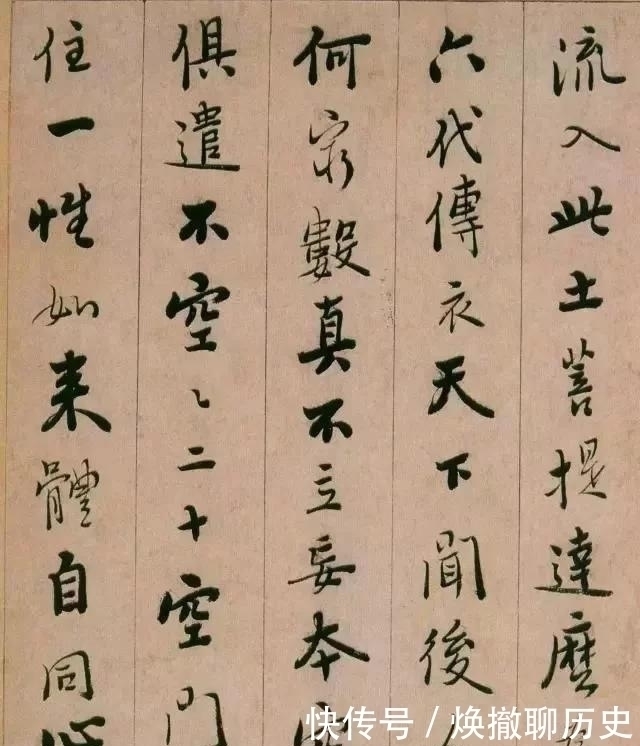 流入此土菩提達磨
六代傳衣天下聞後
何窮數真不立妄本
俱遣不空〻二十空門
住一性如来體自同心
快传号 / 焕撤聊历史